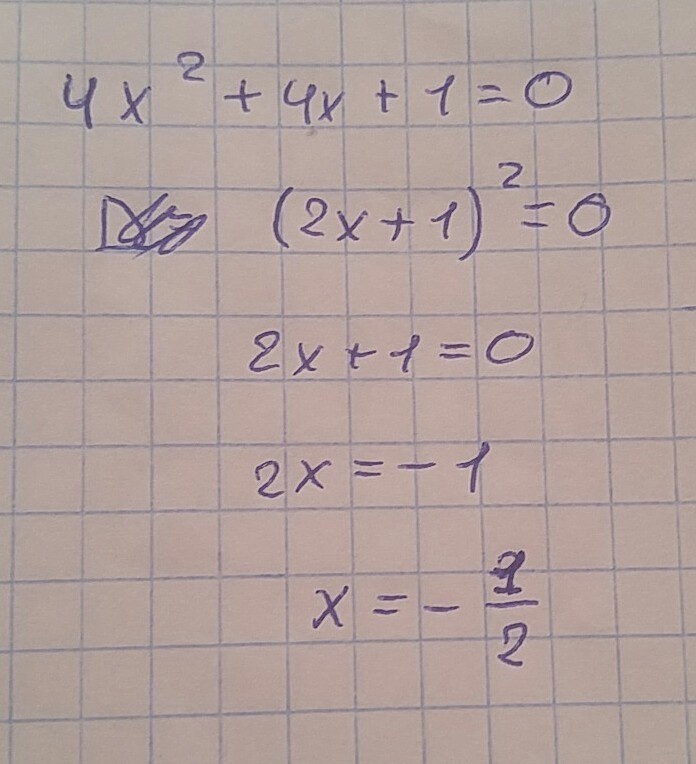 4x² + 4x + 1 = 0
(2x + 1)² = 0
2x + 1 = 0
2x = - 1
x = - 1/2